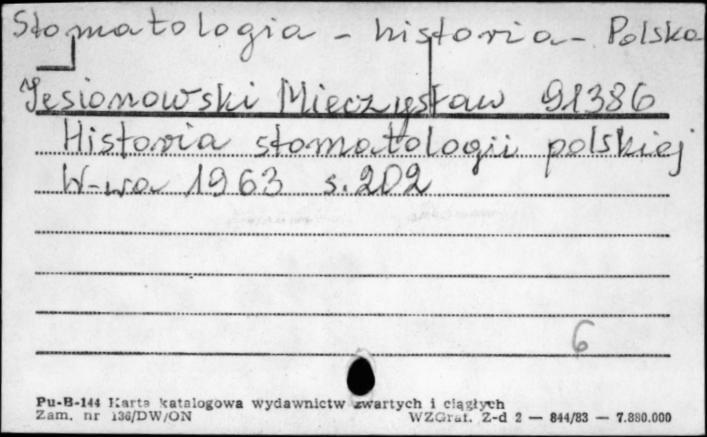 Stomatologia - historia - Polska
Jesionowski Mieczysław 91386
Historia stomatologii polskiej
W-wa 1963 s. 202
6
Pu-B-144 Karta katalogowa wydawnictw zwartych i ciągłych
Zam. nr 136/DW/ON WZGraf. Z-d 2 — 844/83 — 7.880.000